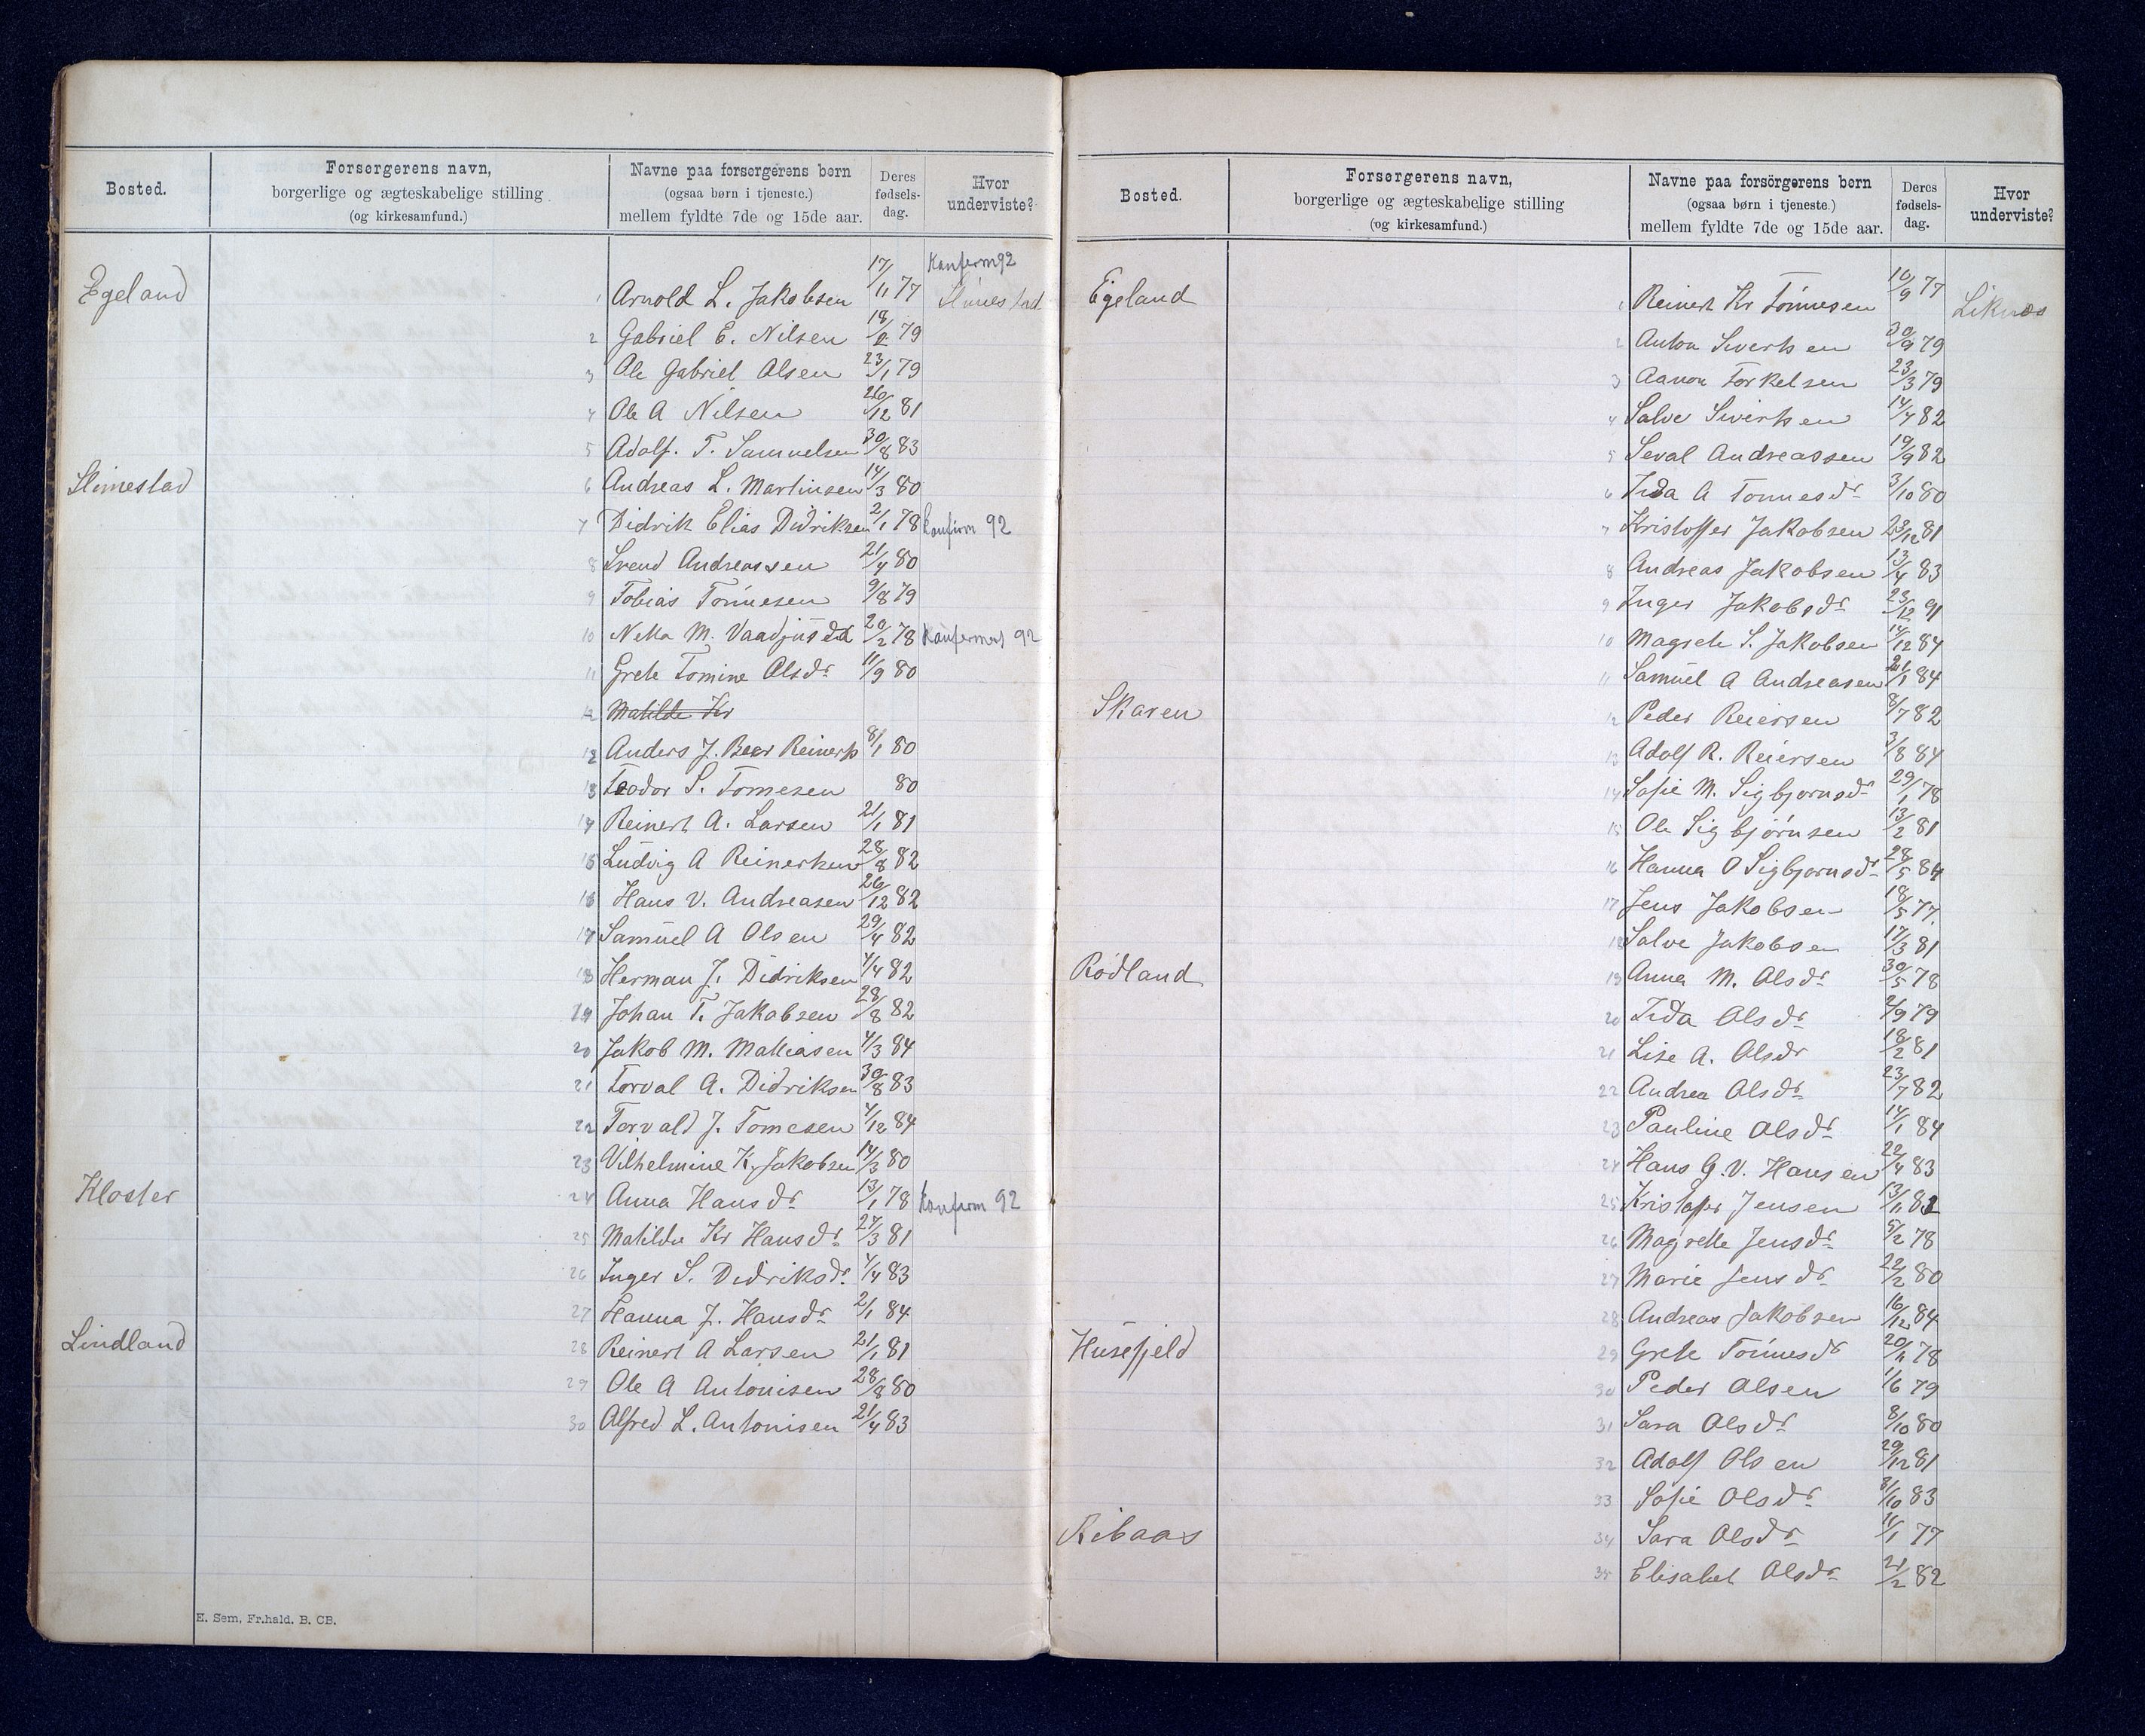 Bosted.
Forsørgerens navn,
borgerlige og ægteskabelige stilling
(og kirkesamfund.)
Navne paa forsørgerens børn
(ogsaa børn i tjeneste.)
mellem fyldte 7de og 15de aar.
Deres
fødsels-
dag.
Hvor
underviste?
Konferm 92
Egeland 1 Arnold L. Jakobsen 17/11 77
2 Gabriel E. Nilsen 18/2 79
3 Ole Gabriel Olsen 23/1 79
4 Ole A Nilsen 26/12 81
5 Adolf. T. Samuelsen 30/8 83
Slimestad 6 Andreas L. Martinsen 14/3 80
7 Didrik Elias Didriksen 2/1 78 Konfirm 92
8 Svend Andreassen 21/4 80
9 Tobias Tønnesen 9/8 79
10 20/2 78 Konfermert 92
11 Grete Tomine Olsdr 11/9 80
12 Matilde Kr
12 Anders J. Beer Reinerts 8/1 80
13 Teodor S. Tomesen 80
14 Reinert A. Larsen 21/1 81
15 Ludvig A Reinertsen 28/8 82
16 Hans V. Andreasen 26/12 82
17 Samuel A Olsen 29/4 82
18 Herman J. Didriksen 4/4 82
19 Johan T. Jakobsen 28/8 82
20 Jakob M. Matiasen 4/3 84
21 Torval A. Didriksen 30/8 83
22 Torvald J. Tomesen 4/12 84
23 Vilhelmine K. Jakobsen 14/3 80
Kloster 24 Anna Hansdr 13/1 78 Konfirm 92
25 Matilde Kr Hansdr 27/3 81
26 Inger S. Didriksdr. 4/4 83
27 Hanna J. Hansdr 2/1 84
Lindland 28 Reinert A Larsen 21/1 81
29 Ole A Antonisen 28/8 80
30 Alfred L. Antonisen 21/4 83
E. Sem, Fr.hald. B. CB.
Bosted.
Forsørgerens navn,
borgerlige og ægteskabelige stilling
(og kirkesamfund.)
Navne paa forsörgerens børn
(ogsaa børn i tjeneste.)
mellem fyldte 7de og 15de aar.
Deres
fødsels-
dag.
Hvor
underviste?
Egeland 1 Reinert Kr Tønnesen 10/9 77 Liknes
2 Anton Sivertsen 30/9 79
3 Aanon Torkelsen 23/3 79
4 Salve Sivertsen 14/4 82
5 Seval Andreassen 19/9 82
6 Tida A Tonnesdr 3/10 80
7 Kristoffer Jakobsen 23/12 81
8 Andreas Jakobsen 13/4 83
9 Inger Jakobsdr 23/12 91
10 Magrete S. Jakobsen 14/12 84
11 Samuel A Andreasen 84
Skaren 12 Peder Reiersen 8/7 82
13 Adolf R. Reiersen 3/8 84
14 Sofie M. Sigbjornsdr 29/1 78
15 Ole Sigbjørnsen 13/2 81
16 Hanna O Sigbjornsdr 28/5 84
17 Jens Jakobsen 18/5 77.
18 Salve Jakobsen 17/3 81
Rødland 19 Anna M. Olsdr 30/5 78
20 Tida Olsdr 2/9 79
21 Lise A. Olsdr 18/2 81
22 Andrea Olsdr 23/7 82
23 Pauline Olsdr 14/1 84
24 Hans G. V. Hansen 22/4 83
25 Kristoffer Jensen 13/11 82
26 Magrette Jensdr 5/2 78
27 Marie Jensdr 22/2 80
28 Andreas Jakobsen 16/12 84
Husefjeld 29 Grete Tønnesdr 20/11 78
30 Peder Olsen 1/6 79
31 Sara Olsdr 8/10 80
32 Adolf Olsen 29/12 81
33 Sofie Olsdr 8/10 83
Ribaas 34 Sara Olsdr 11/1 77
35 Elisabet Olsdr 21/2 82